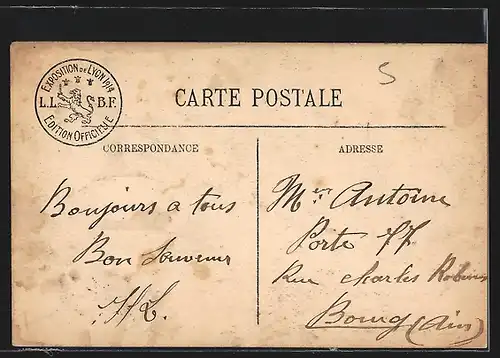 EXPOSITION DE LYON 1914
L.L. B.F.
EDITION OFFICIELLE
5
CARTE POSTALE
CORRESPONDANCE
ADRESSE
Bonjours a tous
Bon Souvenir
Mr Antoine
Porte
Rue Charles Robin
Bourg (Ain)